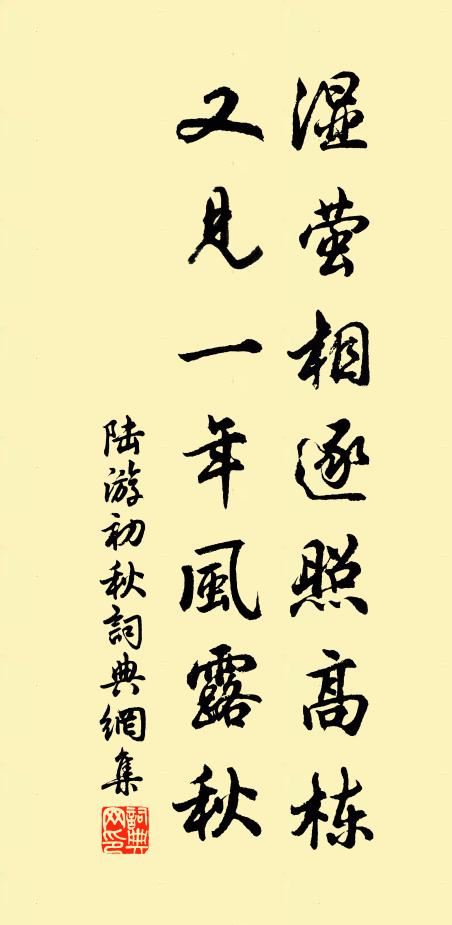 湿萤相逐照高栋
又见一年風露秋
陆游初秋詞典網集
詞典网印